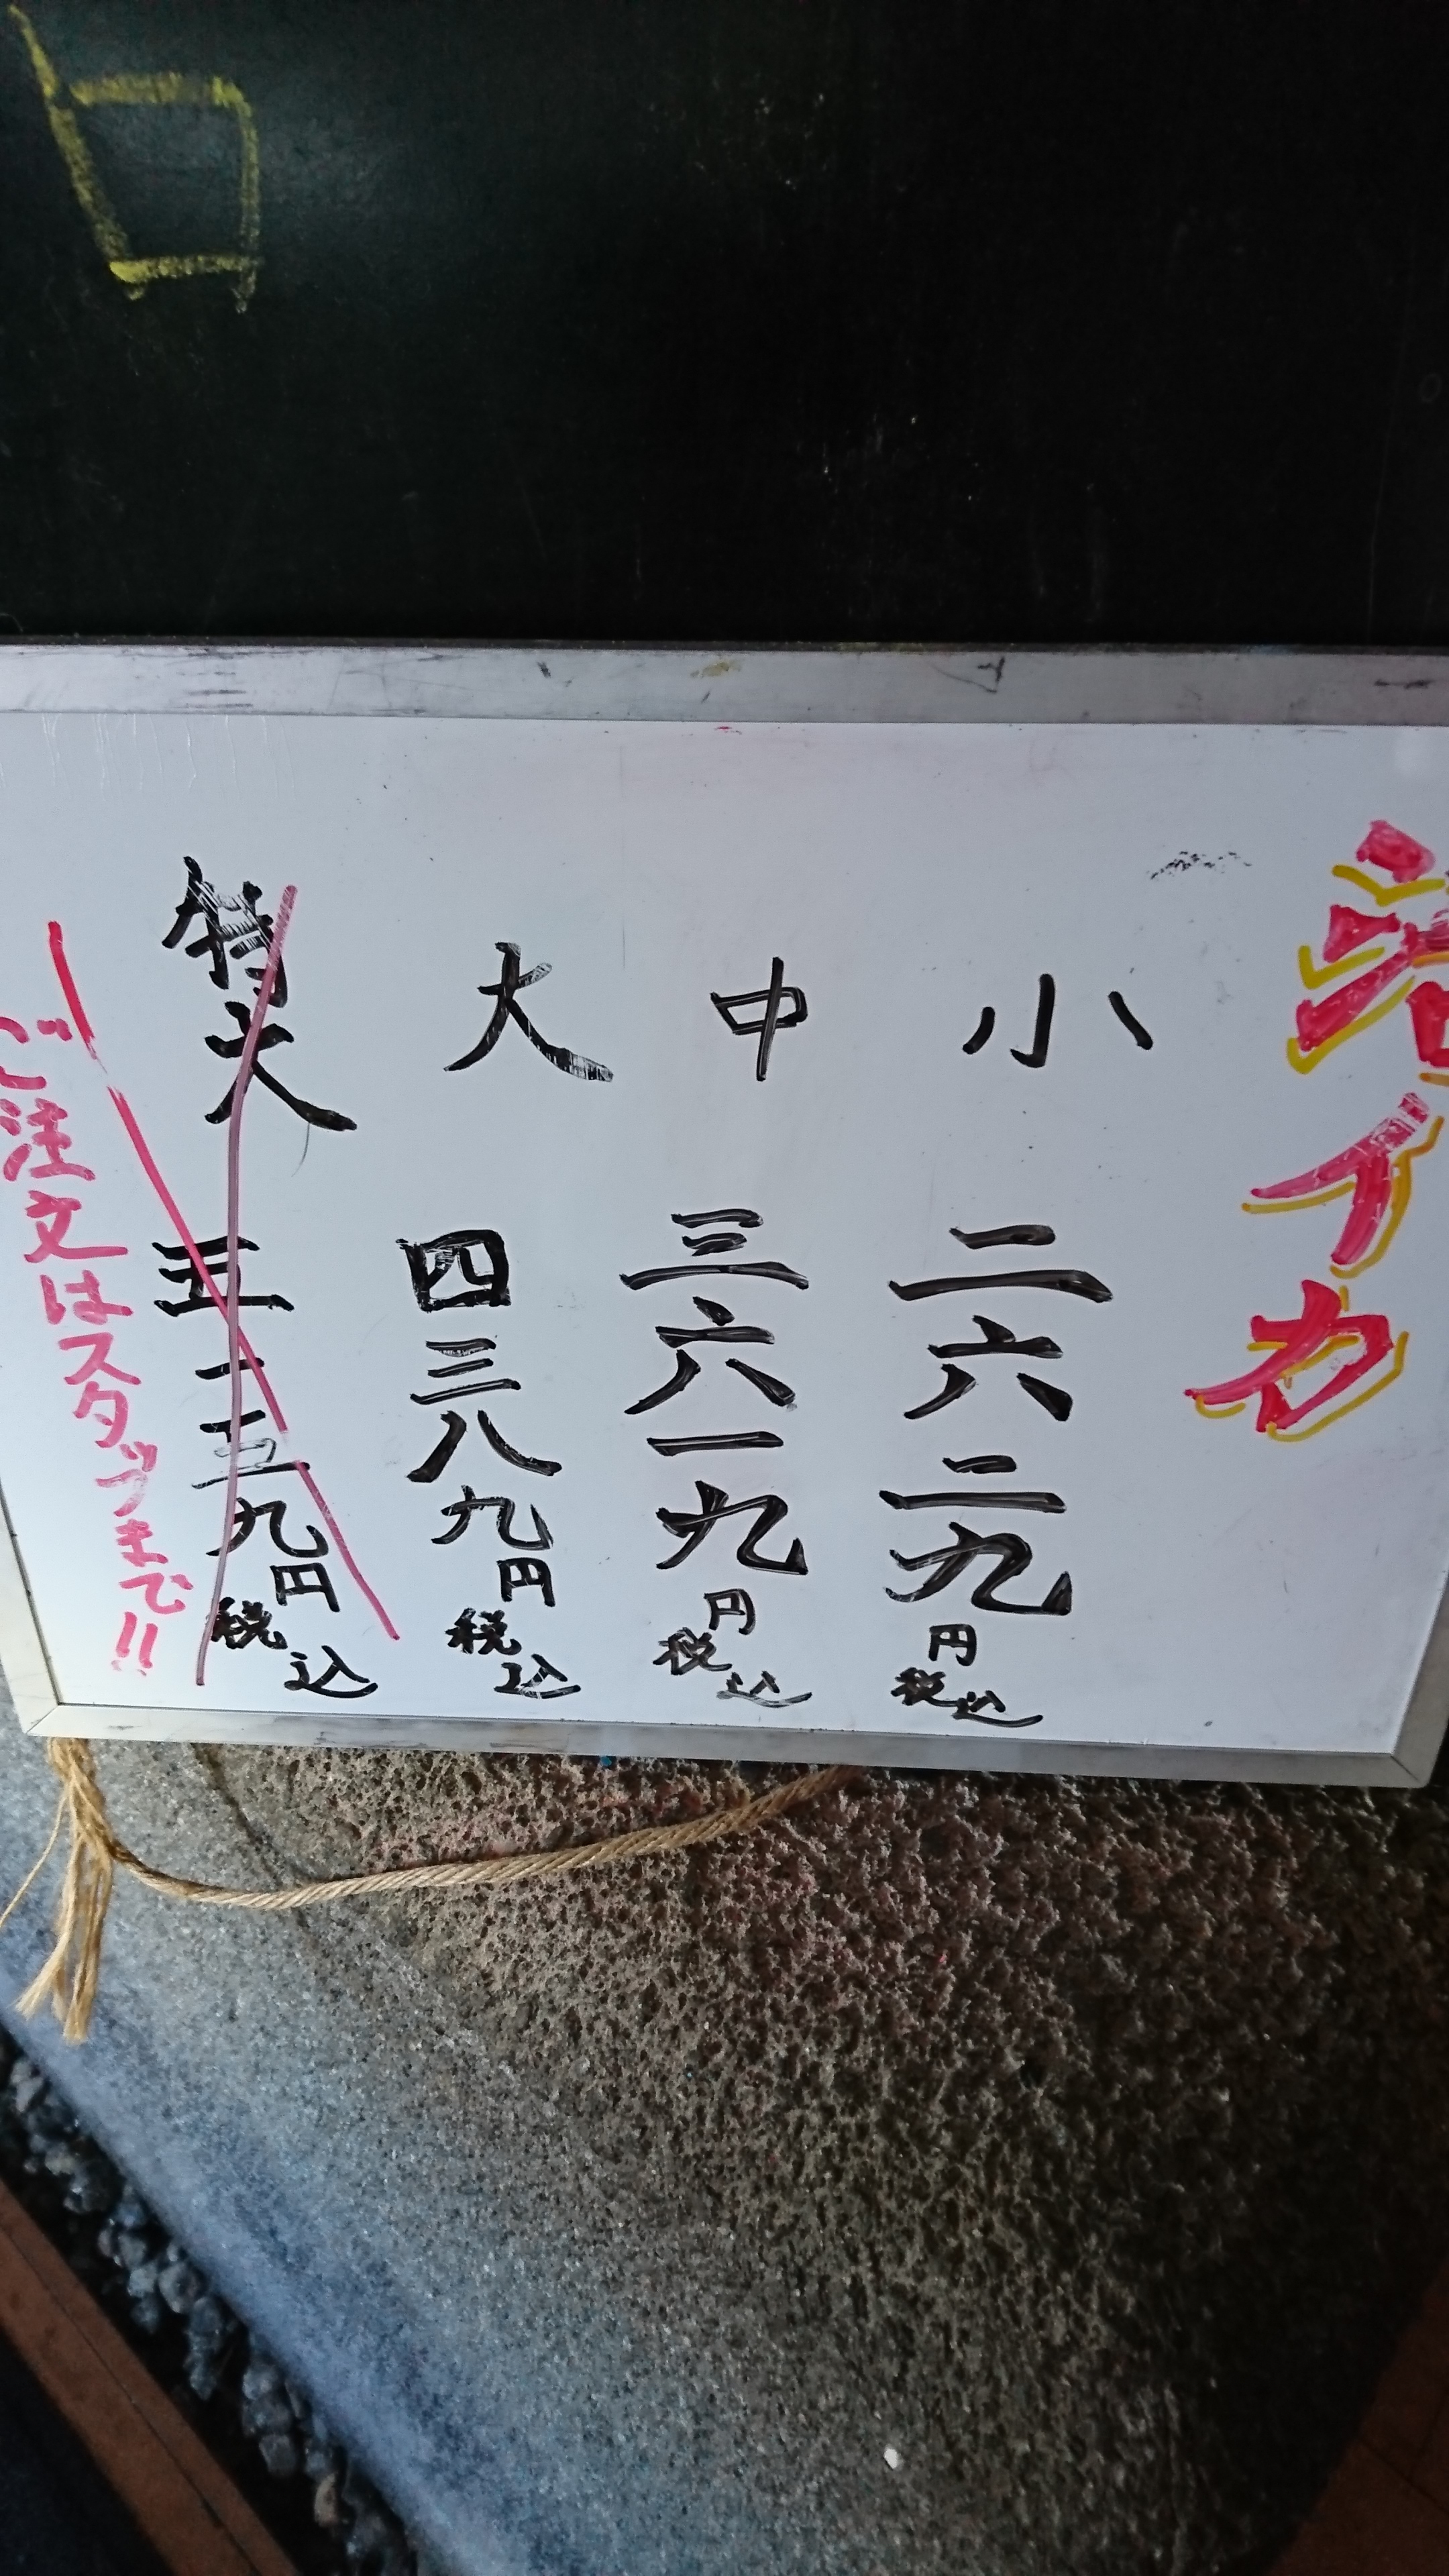 活イカ
小 二六二九円税込
中 三六一九円税込
大 四三八九円税込
特大 五一三九円税込
ご注文はスタッフまで!!